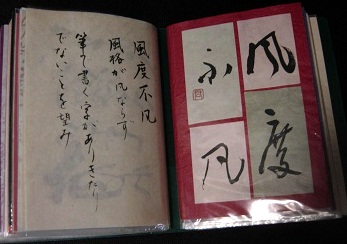 風度
不凡
風度不凡
風格が凡ならず
筆で書く字がありきたり
でないことを望み